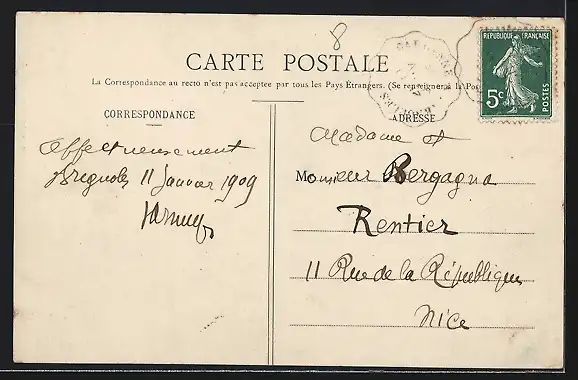 8
CARTE POSTALE
La Correspondance au recto n'est pas acceptée par tous les Pays Étrangers. (Se renseigner à la Pos
RÉPUBLIQUE FRANÇAISE
5c
POSTES
CORRESPONDANCE
Affectueusement
Brignoles 11 Janvier 1909
ADRESSE
Madame et
Monsieur Bergagna
Rentier
11 Rue de la République
Nice